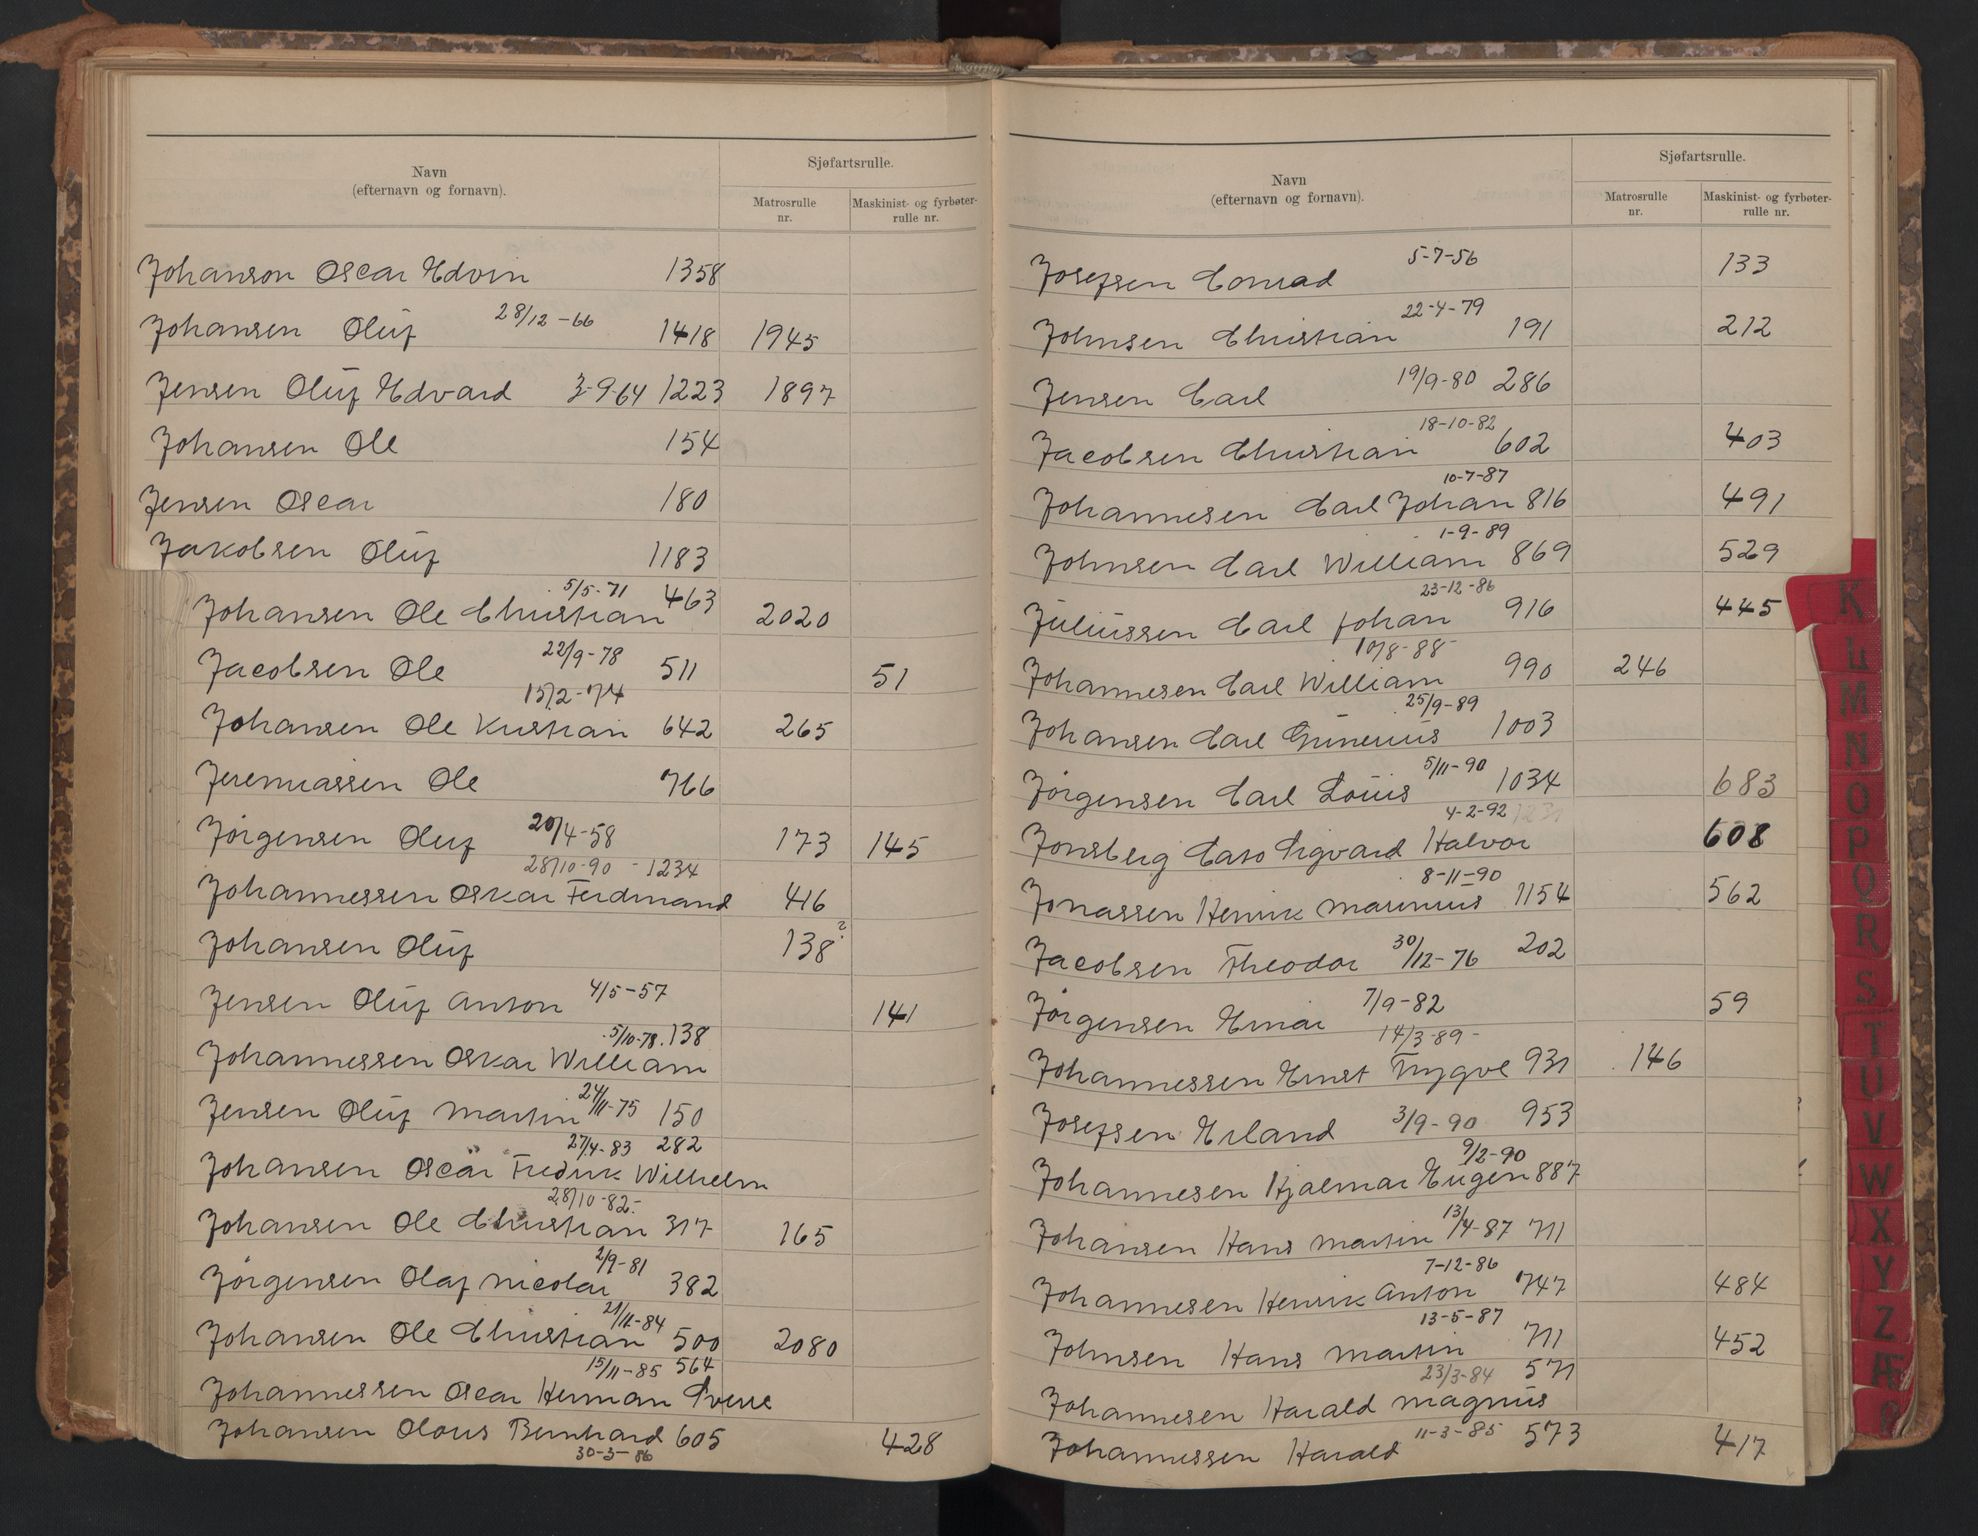 Navn
(efternavn og fornavn).
Sjøfartsrulle.
Matrosrulle
nr.
Maskinist- og fyrbøter-
rulle nr.
Johanson Oscar Edvin 1358
Johansen Oluf 28/12-66 1418 1945
Jensen Oluf Edvard 3-9-64 1223 1897
Johansen Ole 154
Jensen Oscar 180
Jakobsen Oluf 1183
Johansen Ole Christian 5/5-71 463 2020
Jacobsen Ole 22/9-78 511 51
Johansen Ole Kristian 15/2-74 642 265
Jeremiassen Ole 766
Jörgensen Oluf 20/4-58 173 145
28/10-90 - 1234
Johannessen Oskar Ferdinand 416
Johansen Oluf 138?
Jensen Oluf Anton 4/5-57 141
5/10-78. 138
Johannessen Oskar William
Jensen Oluf Martin 24/11-75 150
27/4-83 282
Johansen Oscar Fredrik Wilhelm
28/10-82-
Johansen Ole Christian 317 165
Jörgensen Olaf Nicolai 2/9-81 382
Johansen Ole Christian 21/11-84 500 2080
15/11-85 564
Johannessen Oscar Herman Sverre
Johansen Olous Bernhard 605 428
30-3-86
Navn
(efternavn og fornavn).
Sjøfartsrulle.
Matrosrulle
nr.
Maskinist- og fyrbøter-
rulle nr.
Josefsen Conrad 5-7-56 133
Johnsen Christian 22-4-79 191 212
Jensen Carl 19/9-80 286
Jacobsen Christian 18-10-82 602 403
Johannesen Carl Johan 10-7-87 816 491
Johnsen Carl William 1-9-89 869 529
Juliussen Carl Johan 23-12-86 916 445
Johannesen Carl William 10/8-88- 990 246
Johansen Carl Gunerius 25/9-89 1003
Jörgensen Carl Louis 5/11-90 1034 683
4-2-92 1231
Jonsberg Caso Sigvard Halvor 608
Jonassen Henrik Marinius 8-11-90 1154 562
Jacobsen Theodor 30/12-76 202
Jörgensen Einar 7/9-82 59
Johannessen Ernst Trygve 14/3-89- 931 146
Josefsen Erland 3/9-90 953
Johannesen Hjalmar Eugen 9/2-90 887
Johansen Hans Martin 13/4-87 711
Johannesen Henrik Anton 7-12-86 747 484
Johnsen Hans Martin 13-5-87 711 452
23/3-84 571
Johannesen Harald Magnus
Johannessen Harald 11-3-85 573 417
K
L
M
N
O
P
Q
R
S
T
U
V
W
X
Y
Z
Æ
Ø